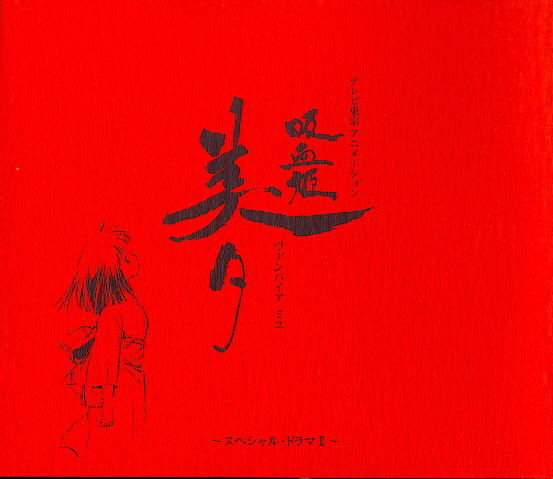 テレビ東京アニメーション
吸血姫
美夕
ヴァンパイア ミユ
～スペシャル・ドラマⅡ～